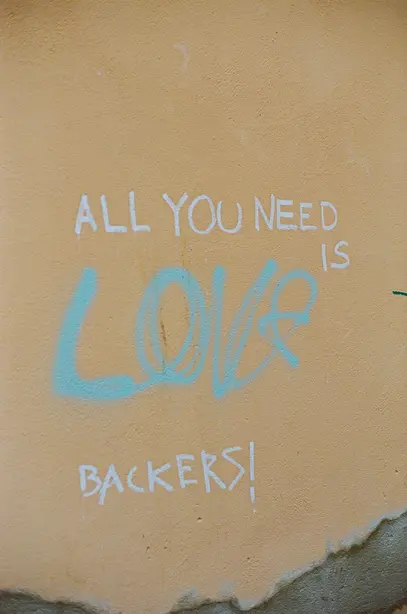 ALL YOU NEED
IS
LOVe
BACKERS!